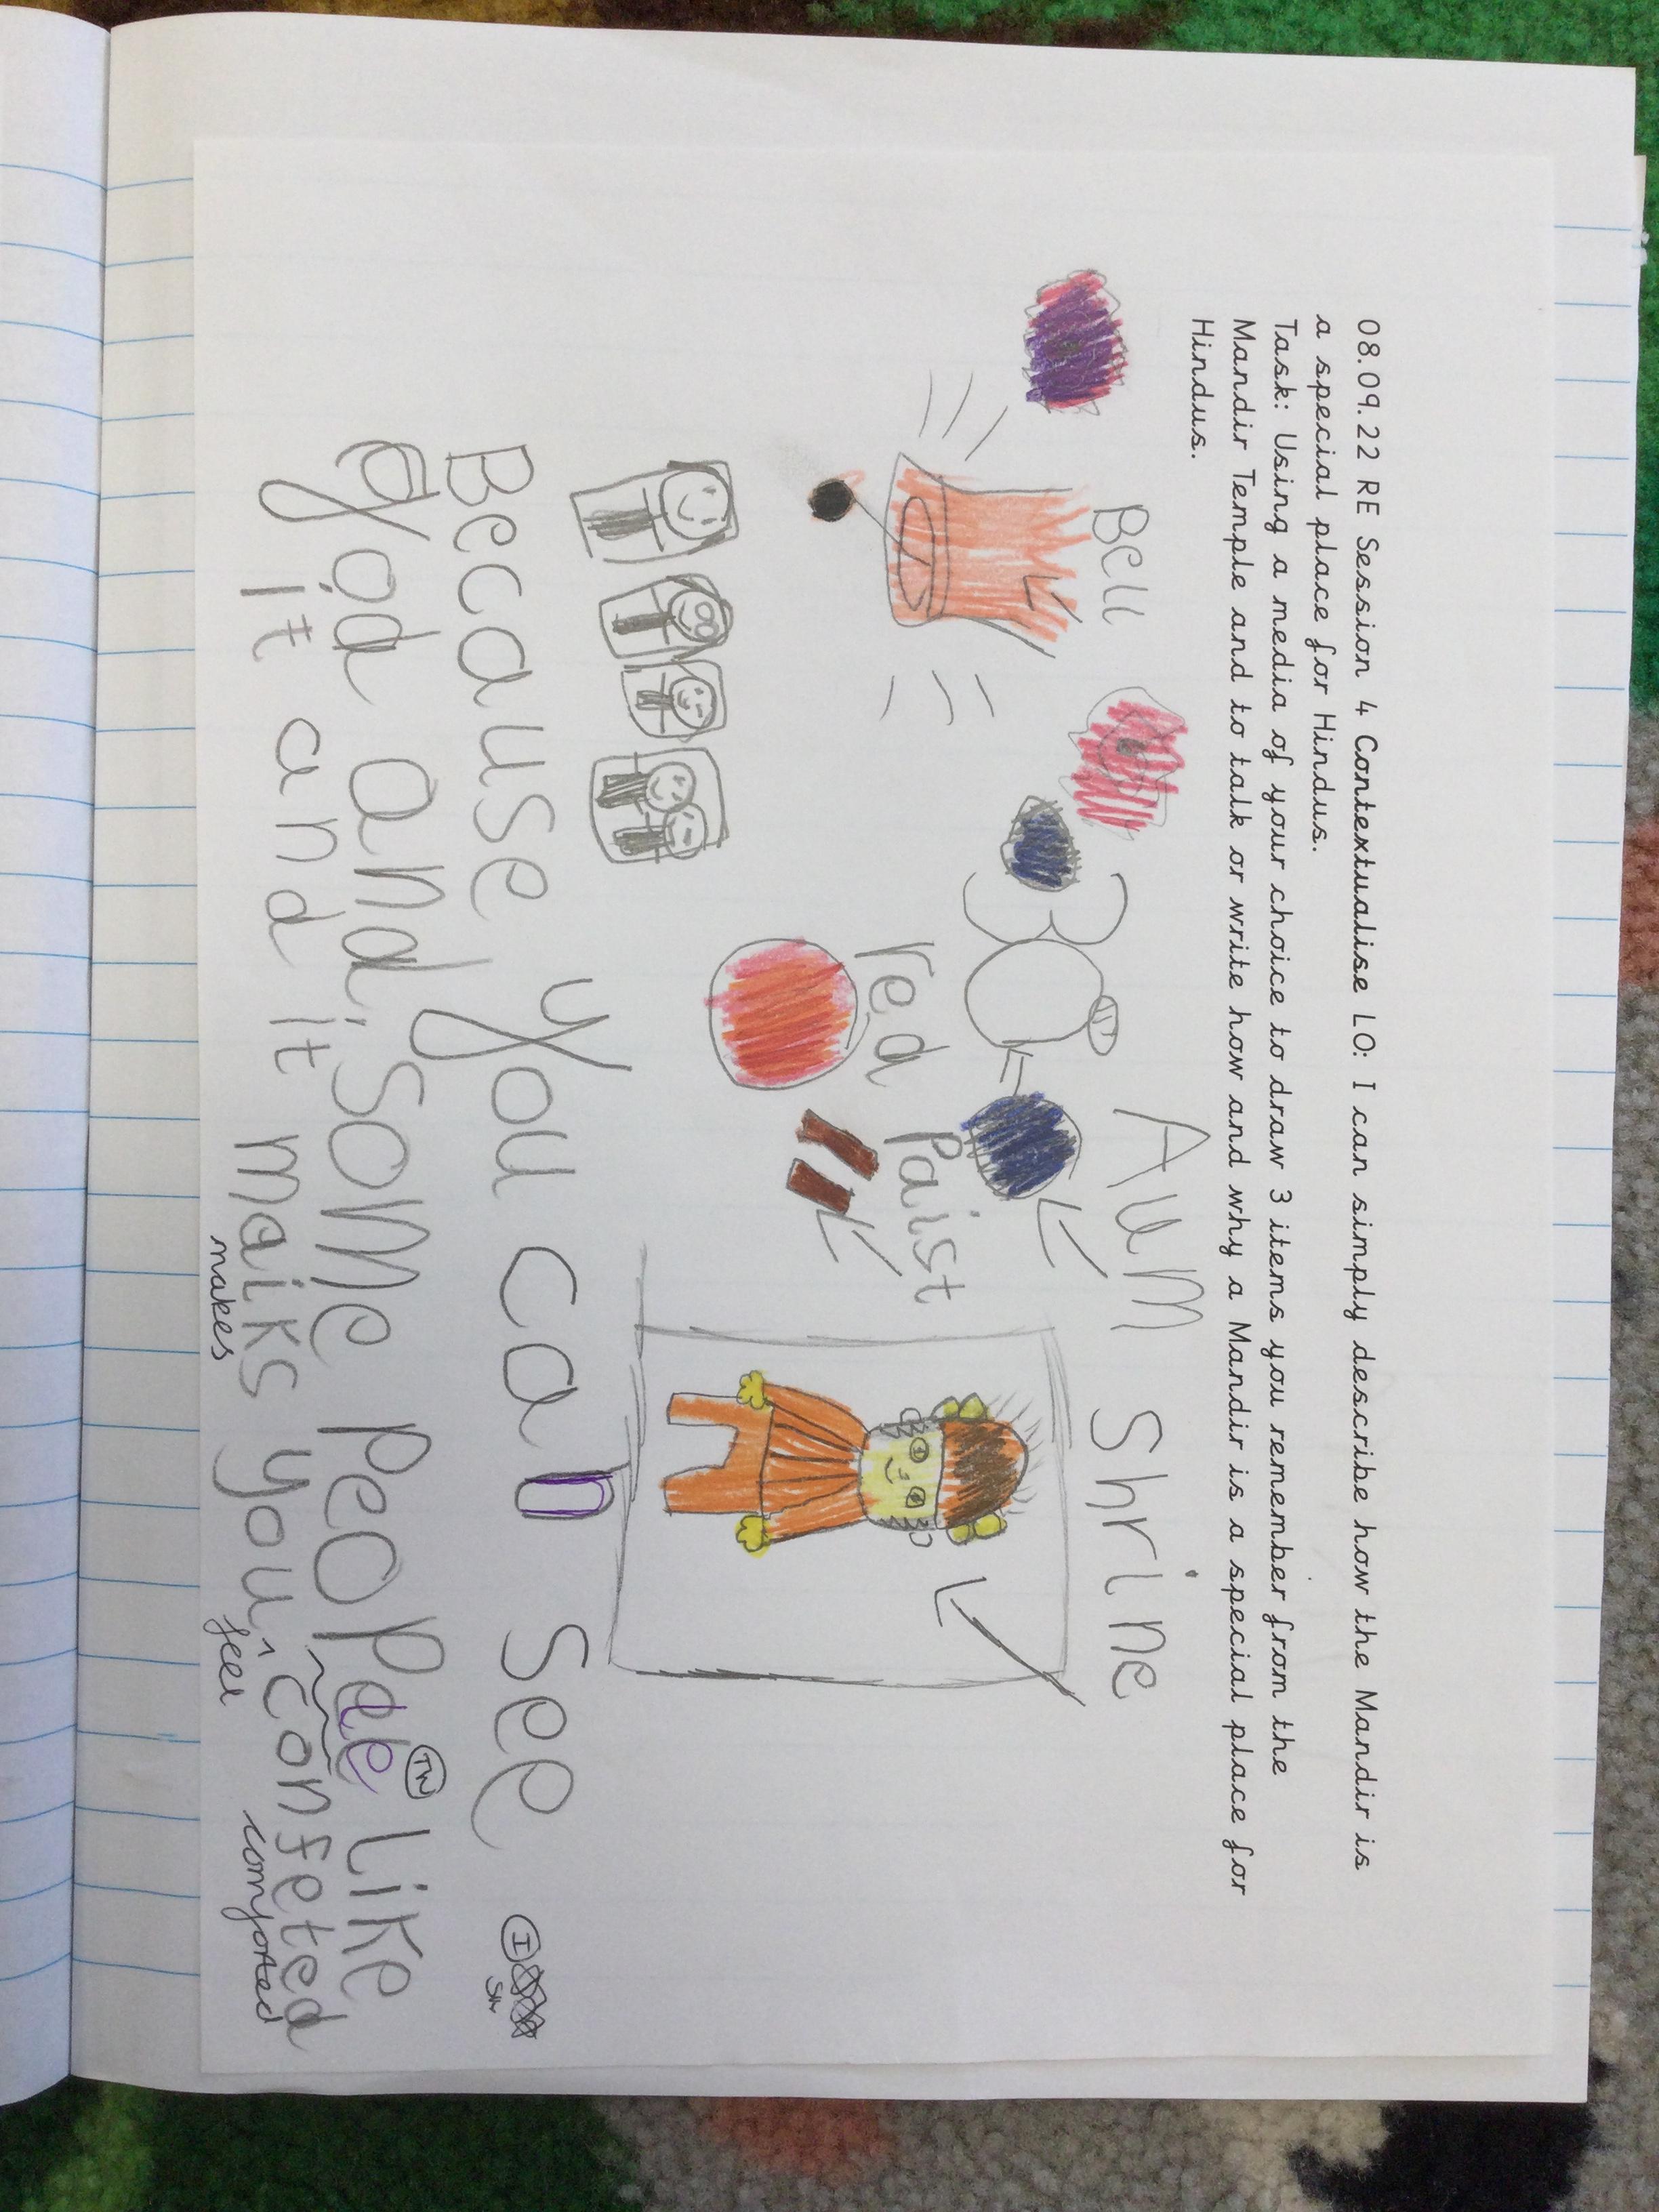 08.09.22 RE Session 4 Contextualise LO: I can simply describe how the Mandir is
a special place for Hindus.
Task: Using a media of your choice to draw 3 items you remember from the
Mandir Temple and to talk or write how and why a Mandir is a special place for
Hindus.
Bell
Aum
Shrine
red paist
Because you can see
god and some people like
TW
it and it maiks you confeted
makes
feel
comforted
I